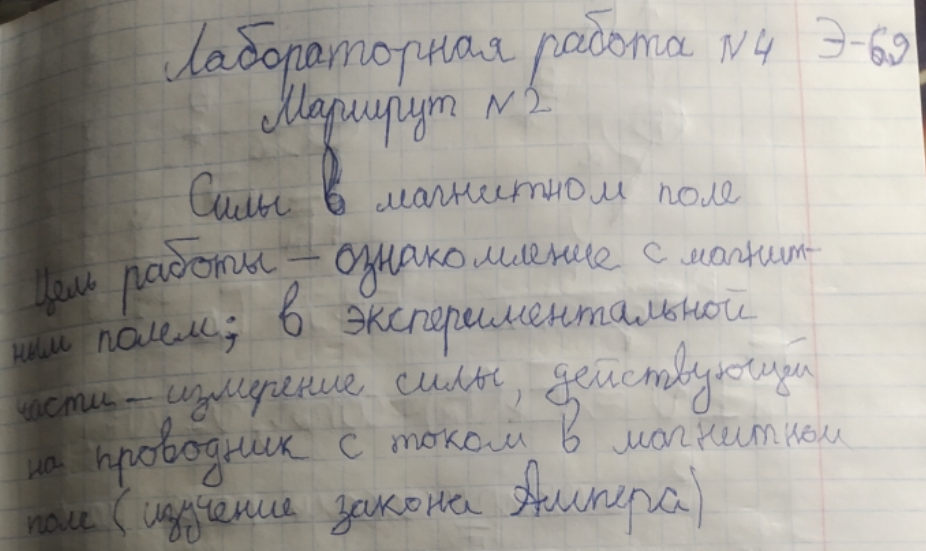 Лабораторная работа N4 Э-69
Маршрут N2
Силы в магнитном поле
Цель работы — ознакомление с магнит-
ным полем; в экспериментальной
части — измерение силы, действующей
на проводник с током в магнитном
поле (изучение закона Ампера)